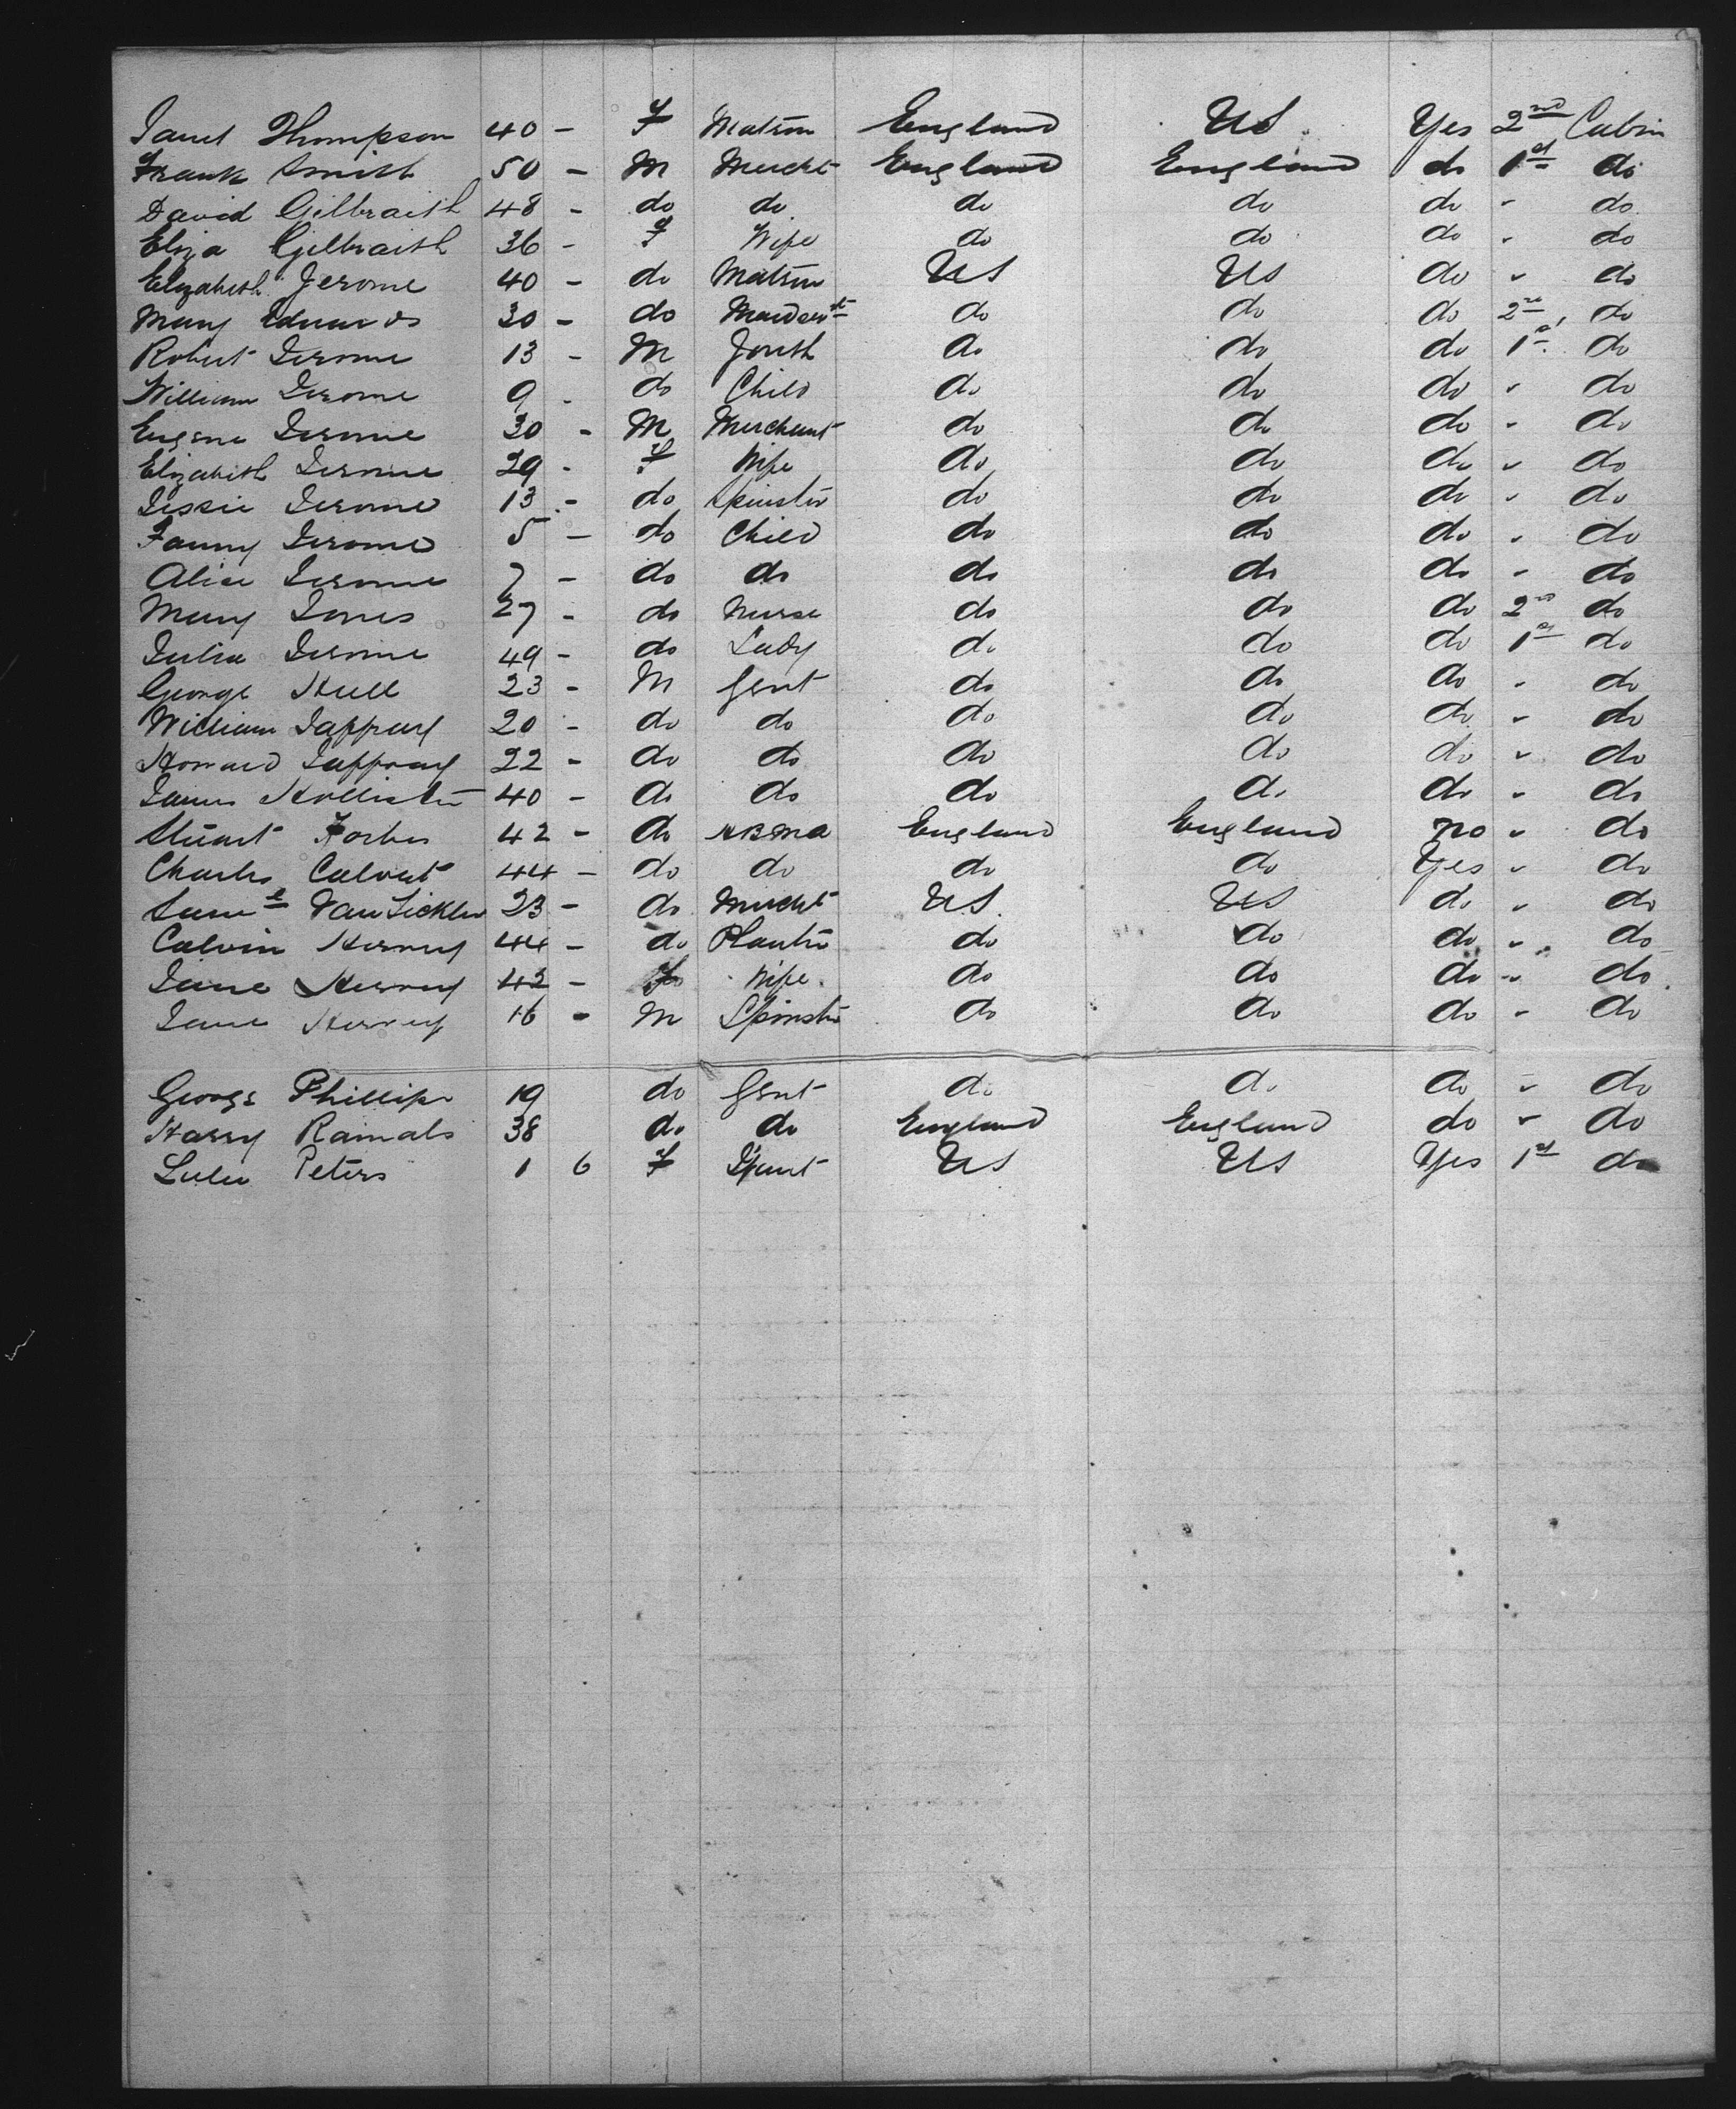 Janet Thompson 40 - F Matron England US Yes 2nd Cabin
Frank Smith 50 - M Mercht England England do 1st do
David Gilbraith 48 - do do do do do " do
Eliza Gilbraith 36 - F Wife do do do " do
Elizabeth Jerome 40 - do Matron US US do " do
Mary Edwards 30 - do Maidservt do do do 2nd do
Robert Jerome 13 - M Youth do do do 1st do
William Jerome 9 - do Child do do do " do
Eugene Jerome 30 - M Merchant do do do " do
Elizabeth Jerome 29 - F Wife do do do " do
Jessie Jerome 13 - do Spinster do do do " do
Fanny Jerome 5 - do Child do do do " do
Alice Jerome 7 - do do do do do " do
Mary Jones 27 - do Nurse do do do 2nd do
Julia Jerome 49 - do Lady do do do 1st do
George Hull 23 - M Gent do do do " do
William Jaffray 20 - do do do do do " do
Howard Jaffray 22 - do do do do do " do
James Hollister 40 - do do do do do " do
Stuart Forbes 42 - do HBMA England England no " do
Charles Calvert 44 - do do do do Yes " do
Saml VanSickler 23 - do Mercht US US do " do
Calvin Hervey 44 - do Planter do do do " do
Jane Hervey 42 - F Wife do do do " do
Jane Hervey 16 - M Spinster do do do " do
George Phillips 19 do Gent do do do " do
Harry 38 do do England England do " do
Lulu Peters 1 6 F US US Yes 1st do